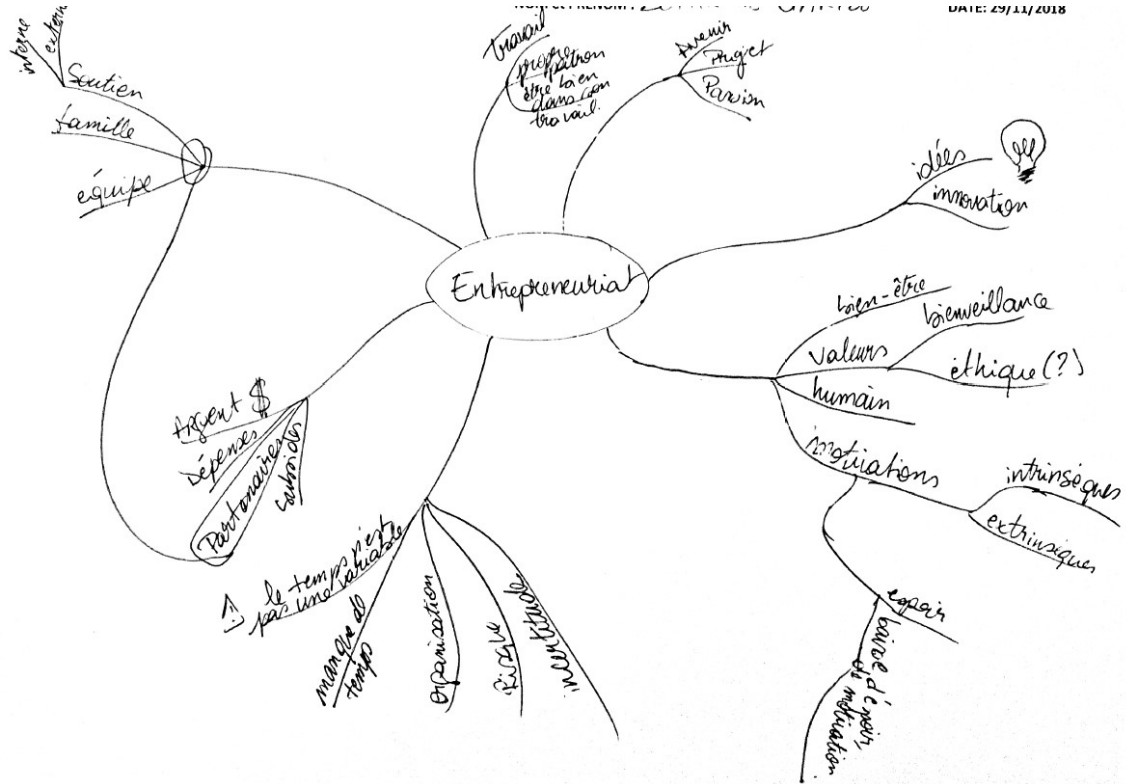 DATE: 29/11/2018
interne
externe
Soutien
famille
équipe
travail
propre
patron
être bien
dans son
travail.
Avenir
Projet
Passion
idées
innovation
Entrepreneuriat
bien-être
bienveillance
valeurs
éthique (?)
humain
motivations
intrinsèques
extrinsèques
espoir
baisse d'espoir,
de motivation
Argent $
Dépenses
Partenaires
subsides
le temps n'est
pas une variable
manque de
temps
organisation
Risque
incertitude